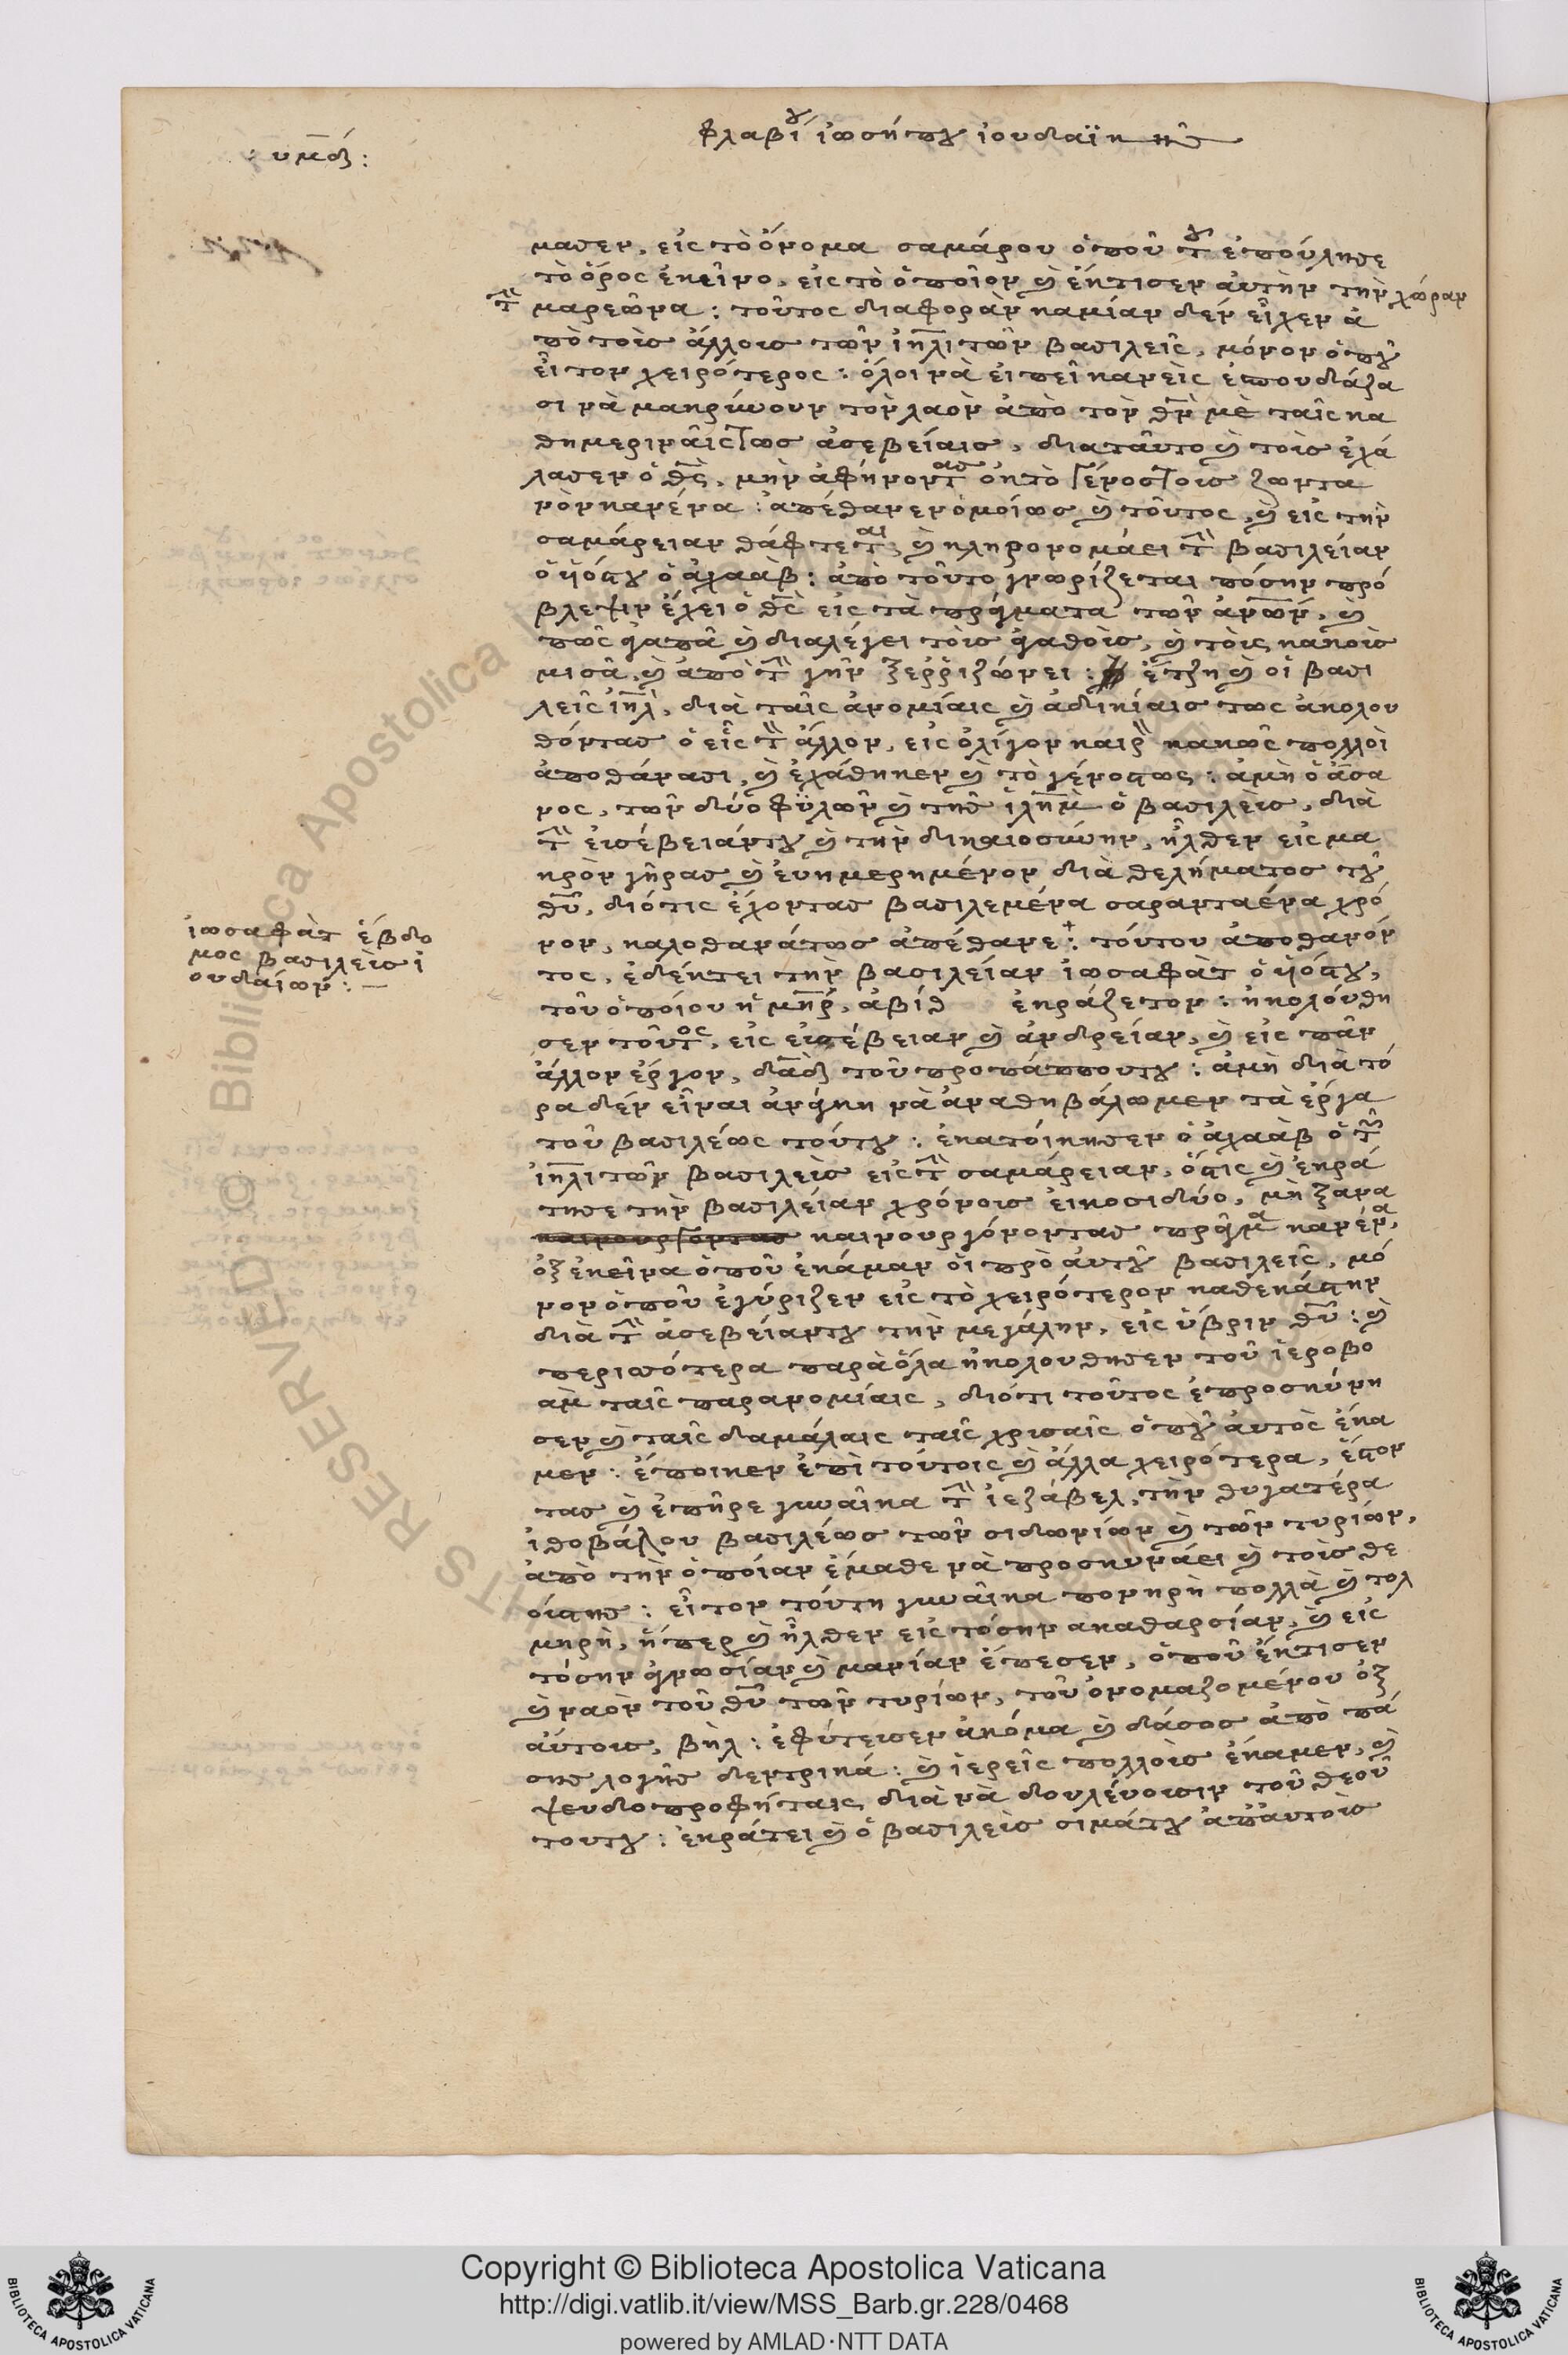 φλαβίου ἰωσήπου ἰουδαϊκῆς
: υμδ :
μασεν, εἰς τὸ ὄνομα σαμάρου ὁποῦ τοῦ ἐπούλησε
τὸ ὄρος ἐκεῖνο, εἰς τὸ ὁποῖον καὶ ἔκτισεν ἀυτὴν τὴν χώραν
τὴν μαρεῶνα : τοῦτος διαφορὰν καμίαν δὲν εἶχεν ἀ
πὸ τοὺς ἄλλους τῶν ἰηλιτῶν βασιλεῖς, μόνον ὁποῦ
εἶτον χειρότερος : ὅλοι νὰ εἰπεῖ κανεὶς ἐσπουδάζα
σι νὰ μακρύνουν τὸν λαὸν ἀπὸ τὸν θν μὲ ταῖς κα
θημεριναῖς τως ἀσεβείαις, διαταῦτο καὶ τοὺς ἐχά
λασεν ὁ θς, μὴν ἀφήνοντας ὀκ τὸ γένος τους ζωντα
νὸν κανένα : ἀπέθανεν ὁμοίως καὶ τοῦτος, καὶ εἰς τὴν
σαμάρειαν θάφτεται, καὶ κληρονομάει τὴν βασιλείαν
ὁ ϋιός του ὁ ἀχαὰβ : ἀπὸ τοῦτο γνωρίζεται πόσην πρό
βλεψιν ἔχει ὁ θς εἰς τὰ πράγματα τῶν ἀνων, καὶ
πῶς ἀγαπᾶ καὶ διαλέγει τοὺς ἀγαθοὺς, καὶ τοὺς κακοὺς
μισᾶ, καὶ ἀπὸ τὴν γῆν ξερριζώνει : ἔτζη καὶ οἱ βασι
λεῖς ἰηλ, διὰ ταῖς ἀνομίαις καὶ ἀδικίαις τως ἀκολου
θόντας ὁ εἷς τὸν ἄλλον, εἰς ὀλίγον καιρὸν κακῶς πολλοὶ
ἀποθάνασι, καὶ ἐχάθηκεν καὶ τὸ γένος τως : ἀμὴ ὁ ἄσα
νος, τῶν δύο φϋλῶν καὶ τῆς ἱλημ ὁ βασιλεὺς, διὰ
τὴν εὐσέβειάν του καὶ τὴν δικαιοσύνην, ἦλθεν εἰς μα
κρὸν γῆρας καὶ ἐυημερημένον διὰ θελήματος τοῦ
θυ, διότις ἔχοντας βασιλεμένα σαρανταένα χρό
νον, καλοθανάτως ἀπέθανε : τούτου ἀποθανόν
τος, ἐδέκτει τὴν βασιλείαν ἰωσαφὰτ ὁ ϋιός του,
τοῦ ὁποίου ἡ μηρ, ἀβίδ ἐκράζετον : ἠκολούθη
σεν τοῦτος, εἰς εὐσέβειαν καὶ ἀνδρείαν, καὶ εἰς πᾶν
ἄλλον ἔργον, δαδ τοῦ προπάππου του : ἀμὴ διὰ τό
ρα δὲν εἶναι ἀνάγκη νὰ ἀναθηβάλωμεν τὰ ἔργα
τοῦ βασιλέως τούτου : ἐκατοίκησεν ὁ ἀχαὰβ ὁ τῶν
ἰηλιτῶν βασιλεὺς εἰς τὴν σαμάρειαν, ὅστις καὶ ἐκρά
τησε τὴν βασιλείαν χρόνους ἐικοσιδύο, μὴ ξανα
καινουργόνοντας πράγμα κανένα,
ὀξ ἐκεῖνα ὁποῦ ἐκάμαν ὁι πρὸ ἀυτοῦ βασιλεῖς, μό
νον ὁποῦ ἐγύριζεν εἰς τὸ χειρότερον καθεκάστην
διὰ τὴν ἀσεβείαν του τὴν μεγάλην, εἰς ὕβριν θυ : καὶ
περισσότερα παρὰ ὅλα ἠκολουθησεν τοῦ ἱεροβο
ὰμ ταῖς παρανομίαις, διότι τοῦτος ἐπροσκύνη
σεν καὶ ταῖς δαμάλαις ταῖς χρισαῖς ὁποῦ ἀυτὸς ἔκα
μεν : ἔποικεν ἐπὶ τούτοις καὶ ἄλλα χειρότερα, ἔστον
τας καὶ ἐπῆρε γυναῖκα τὴν ἰεζάβελ, τὴν θυγατέρα
ἰθοβάλου βασιλέως τῶν σιδωνίων καὶ τῶν τυρίων,
ἀπὸ τὴν ὁποίαν ἔμαθε νὰ προσκυνάει καὶ τοὺς θε
ούς της : εἶτον τούτη γυναῖκα πονηρὴ πολλὰ καὶ τολ
μηρὴ, ἥπερ καὶ ἦλθεν εἰς τόσην ακαθαρσίαν, καὶ εἰς
τόσην ἀγνωσίαν καὶ μανίαν ἔπεσεν, ὁποῦ ἔκτισεν
καὶ ναὸν τοῦ θυ τῶν τυρίων, τοῦ ὀνομαζομένου ὀξ
αύτους, βὴλ : ἐφύτευσεν ἀκόμα καὶ δάσος ἀπὸ πά
σης λογῆς δεντρικά : καὶ ἱερεῖς πολλοὺς ἔκαμεν, καὶ
ψευδοπροφήταις διὰ νὰ δουλέυουσιν τοῦ θεοῦ
τουτου : ἐκράτει καὶ ὁ βασιλεὺς σιμά του ἀπ ἀυτοὺς
ἰωσαφὰτ ἕβδο
μος βασιλεὺς ἰ
ουδαίων : —
Copyright © Biblioteca Apostolica Vaticana
http://digi.vatlib.it/view/MSS_Barb.gr.228/0468
powered by AMLAD·NTT DATA
BIBLIOTECA APOSTOLICA VATICANA
BIBLIOTECA APOSTOLICA VATICANA